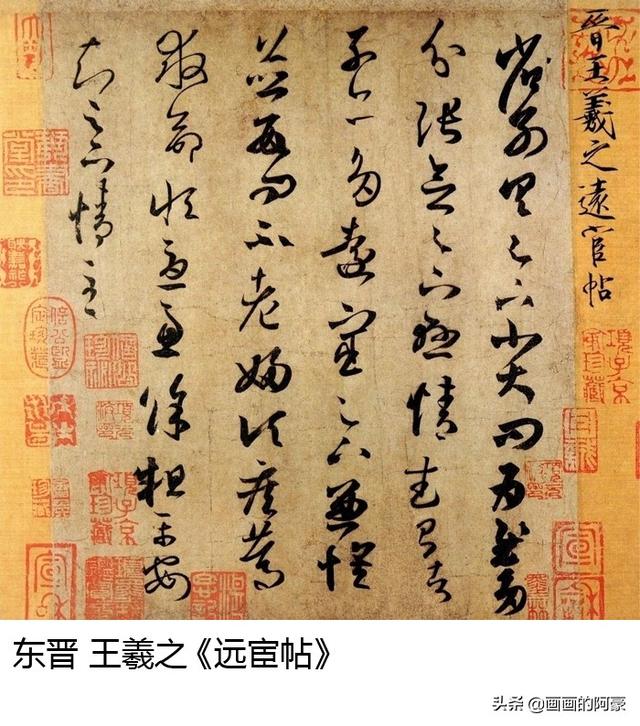 晉王羲之遠宦帖
省別具足下小大問為慰多
分張念足下懸情武昌諸
子亦多遠宦足下兼懷
並數問不老婦頃疾篤
救命恆憂慮餘粗平安
知足下情至
項子京家珍藏
項子京家珍藏
东晋 王羲之《远宦帖》
头条 @画画的阿豪